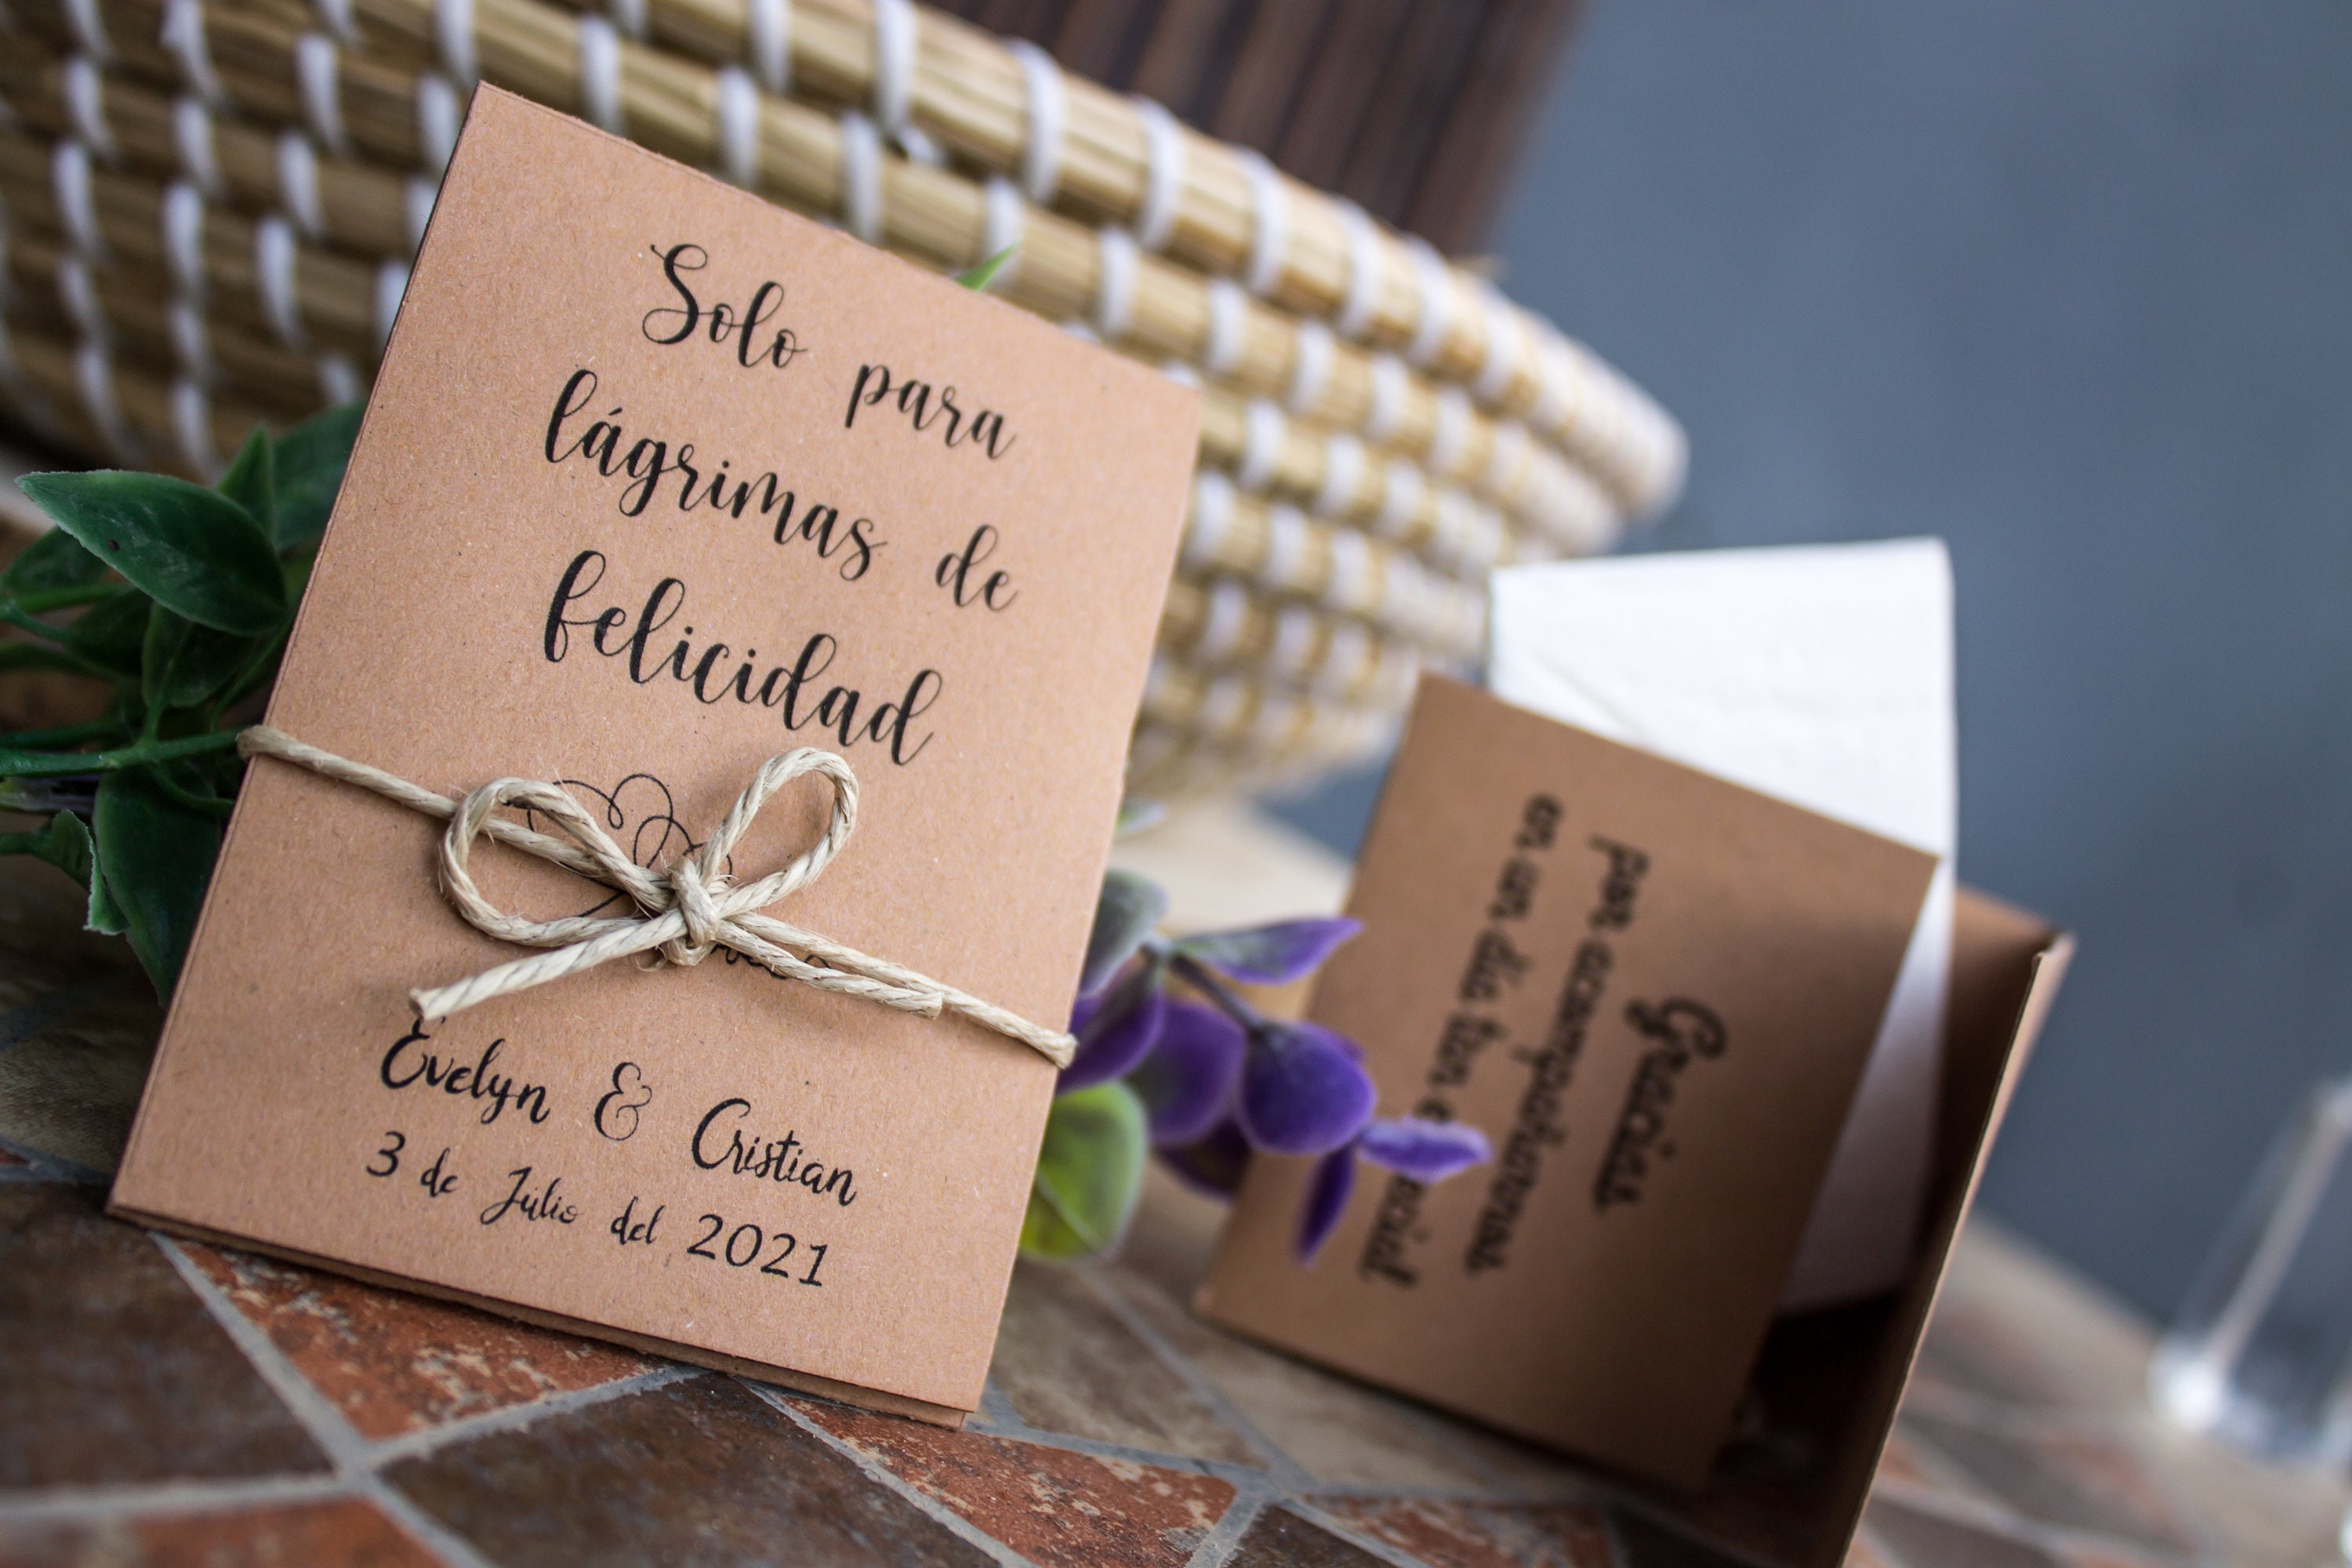 Solo para
lágrimas de
felicidad
Evelyn & Cristian
3 de Julio del 2021
Gracias
por acompañarnos
en un día tan